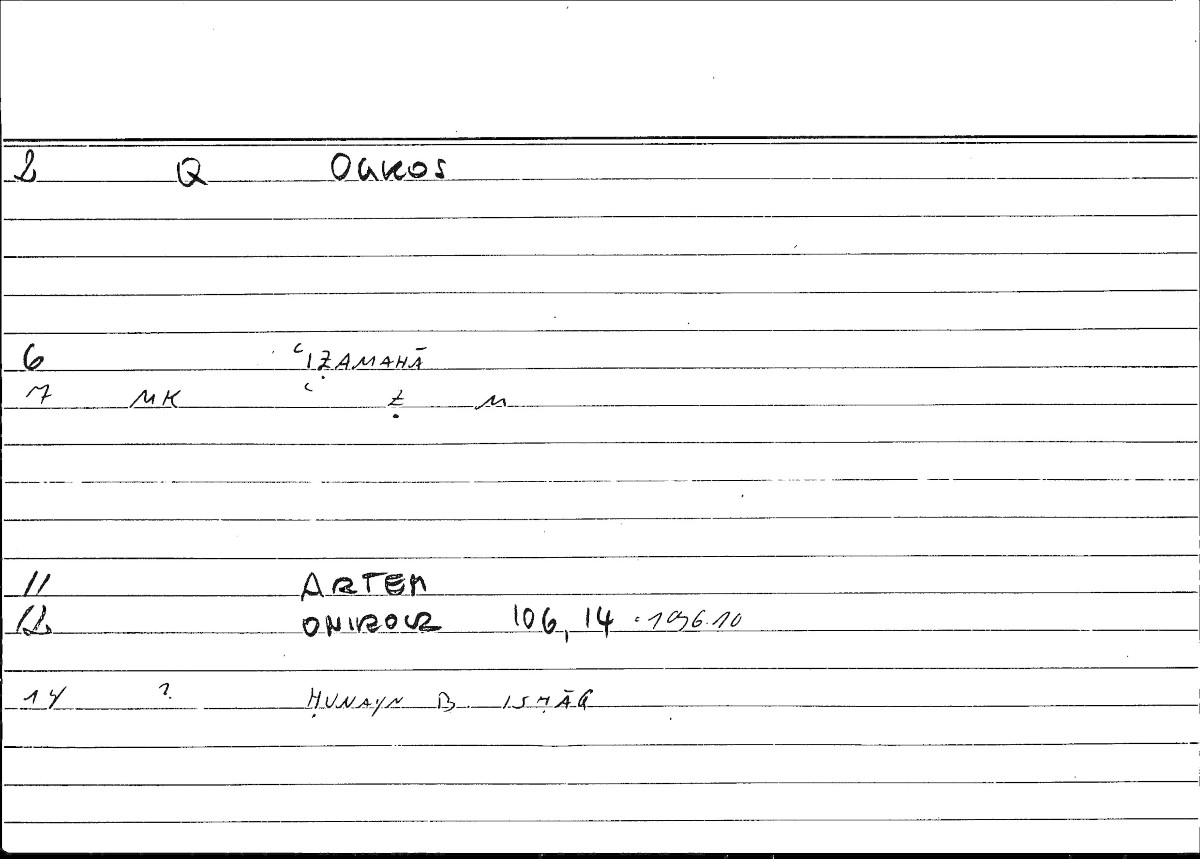 2 Q OGKOS
6 ʿIẒAMAHĀ
7 MK ʿ Ẓ M
11 ARTEM
12 ONIROCR 106,14 · 196.10
14 ? ḤUNAYN B ISḤĀQ